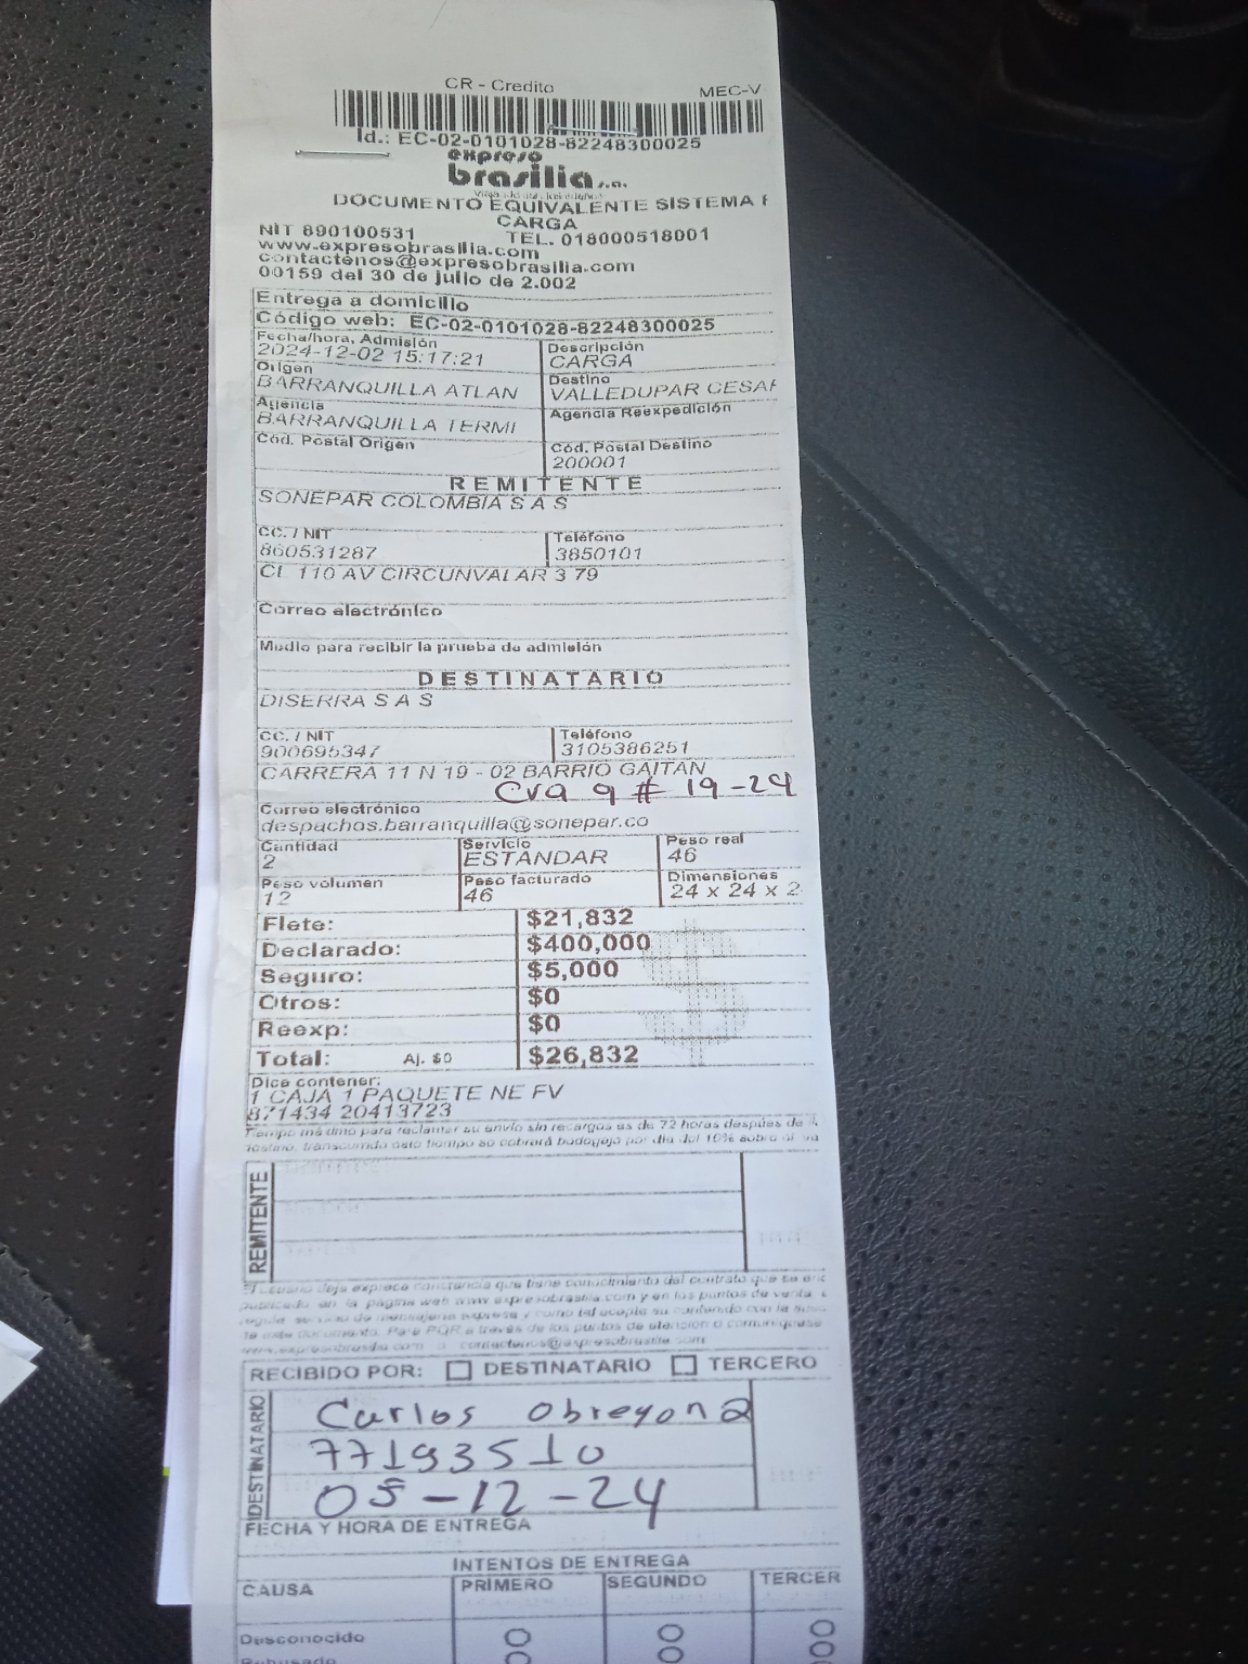 CR - Credito MEC-V
Id.: EC-02-0101028-82248300025
expreso
brasilia s.a.
DOCUMENTO EQUIVALENTE SISTEMA
CARGA
NIT 890100531 TEL. 018000518001
www.expresobrasilia.com
contactenos@expresobrasilia.com
00159 del 30 de julio de 2.002
Entrega a domicilio
Código web: EC-02-0101028-82248300025
Fecha/hora, Admisión Descripción
2024-12-02 15:17:21 CARGA
Origen Destino
BARRANQUILLA ATLAN VALLEDUPAR CESAR
Agencia Agencia Reexpedición
BARRANQUILLA TERMI
Cód. Postal Origen Cód. Postal Destino
200001
REMITENTE
SONEPAR COLOMBIA S A S
CC. / NIT Teléfono
860531287 3850101
CL 110 AV CIRCUNVALAR 3 79
Correo electrónico
Medio para recibir la prueba de admisión
DESTINATARIO
DISERRA S A S
CC. / NIT Teléfono
900695347 3105386251
CARRERA 11 N 19 - 02 BARRIO GAITAN
Cra 9 # 19-24
Correo electrónico
despachos.barranquilla@sonepar.co
Cantidad Servicio Peso real
2 ESTANDAR 46
Peso volumen Peso facturado Dimensiones
12 46 24 x 24 x 2
Flete: $21,832
Declarado: $400,000
Seguro: $5,000
Otros: $0
Reexp: $0
Total: Aj. $0 $26,832
Dice contener:
1 CAJA 1 PAQUETE NE FV
871434 20413723
Tiempo máximo para reclamar su envío sin recargos es de 72 horas después de
transcurrido este tiempo se cobrará bodegaje por día del 10% sobre el va
REMITENTE
El usuario deja expresa constancia que tiene conocimiento del contrato que se enc
publicado en la página web www.expresobrasilia.com y en los puntos de venta,
servicio de mensajería expresa y como tal acepta su contenido con la
te este documento. Para PQR a través de los puntos de atención o comuníquese
www.expresobrasilia.com o contactenos@expresobrasilia.com
RECIBIDO POR: DESTINATARIO TERCERO
DESTINATARIO
Carlos Obregon
77193510
05-12-24
FECHA Y HORA DE ENTREGA
INTENTOS DE ENTREGA
CAUSA PRIMERO SEGUNDO TERCER
Desconocido
Rehusado